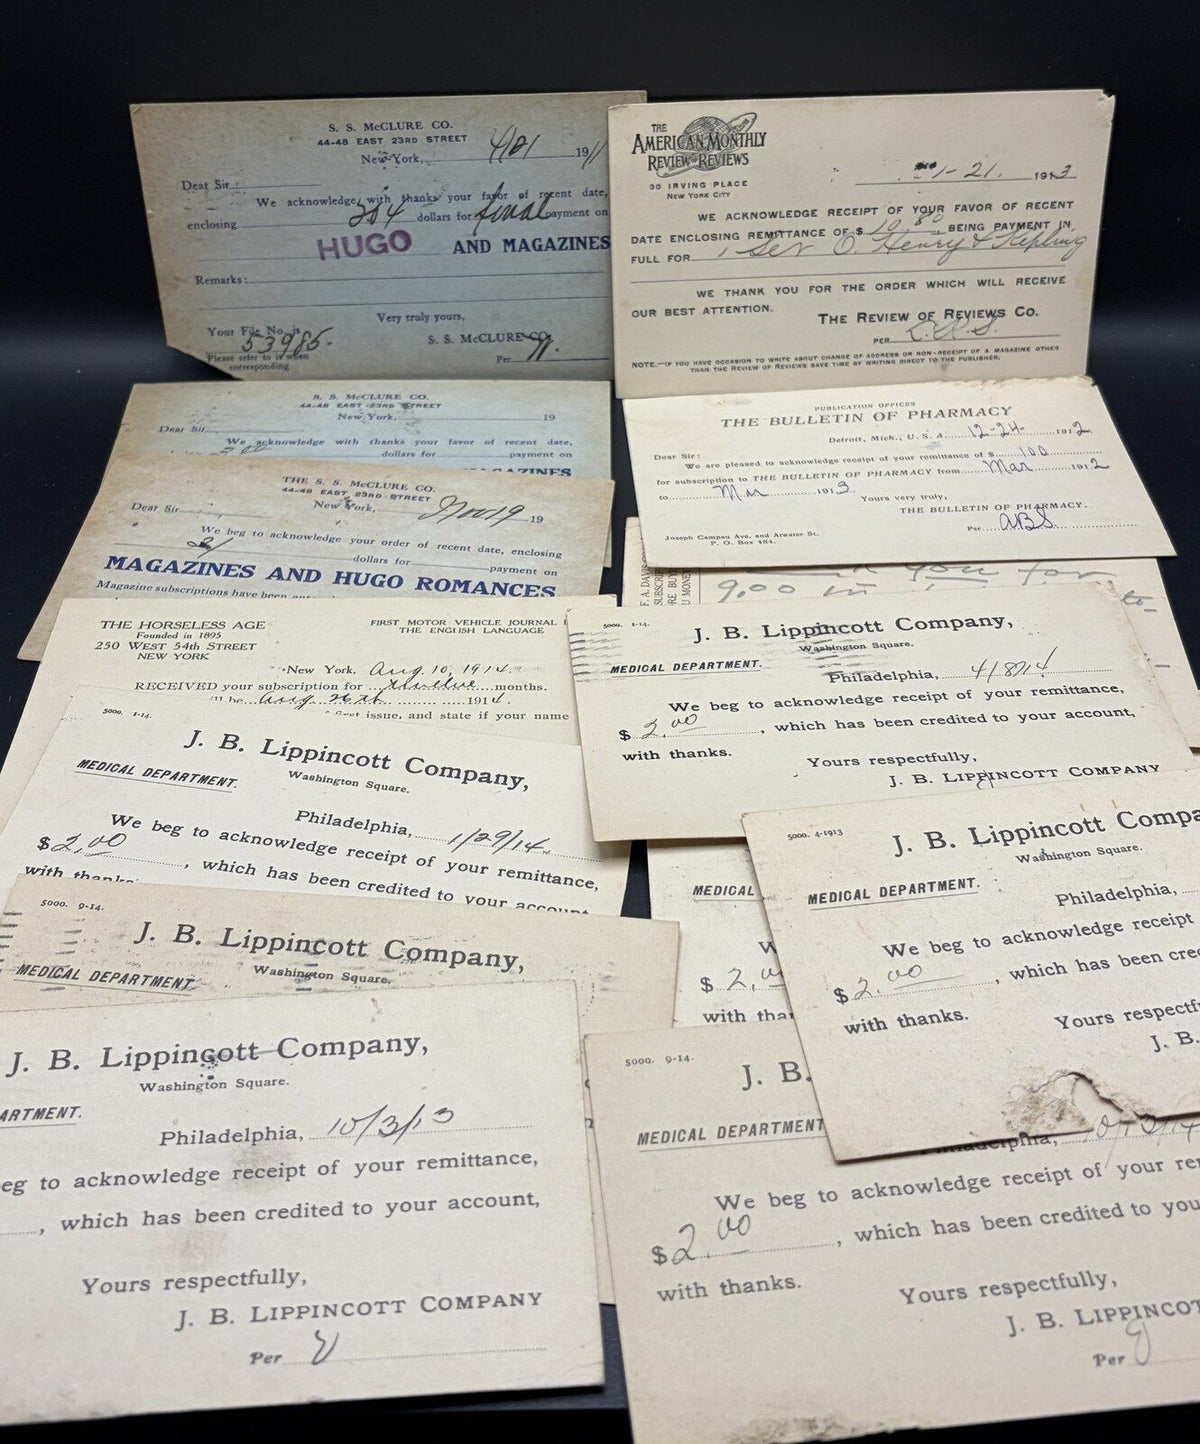 S. S. McCLURE CO.
44-48 EAST 23RD STREET
New York, 4/21 1911
Dear Sir:
We acknowledge with thanks your favor of recent date,
enclosing dollars for final payment on
HUGO AND MAGAZINES
Remarks:
Very truly yours,
Your File No. is S. S. McCLURE CO.
53985.
Please refer to it when Per
corresponding
THE
AMERICAN MONTHLY
REVIEW OF REVIEWS
30 IRVING PLACE
NEW YORK CITY
1-21. 1913
WE ACKNOWLEDGE RECEIPT OF YOUR FAVOR OF RECENT
DATE ENCLOSING REMITTANCE OF $ 10.80 BEING PAYMENT IN
FULL FOR 1 Set O. Henry & Kipling
WE THANK YOU FOR THE ORDER WHICH WILL RECEIVE
OUR BEST ATTENTION.
THE REVIEW OF REVIEWS CO.
PER
NOTE.—IF YOU HAVE OCCASION TO WRITE ABOUT CHANGE OF ADDRESS OR NON-RECEIPT OF A MAGAZINE OTHER
THAN THE REVIEW OF REVIEWS SAVE TIME BY WRITING DIRECT TO THE PUBLISHER.
S. S. McCLURE CO.
44-48 EAST 23RD STREET
New York, 19
Dear Sir
We acknowledge with thanks your favor of recent date,
dollars for payment on
MAGAZINES
PUBLICATION OFFICES
THE BULLETIN OF PHARMACY
Detroit, Mich., U. S. A. 12-24- 1912
Dear Sir:
We are pleased to acknowledge receipt of your remittance of $ 1 00
for subscription to THE BULLETIN OF PHARMACY from Mar 1912
to Mar 1913. Yours very truly,
THE BULLETIN OF PHARMACY.
Per
Joseph Campau Ave. and Atwater St.
P. O. Box 484.
THE S. S. McCLURE CO.
44-48 EAST 23RD STREET
New York, 19
Dear Sir
We beg to acknowledge your order of recent date, enclosing
dollars for payment on
MAGAZINES AND HUGO ROMANCES
Magazine subscriptions have been
F. A. DAVIS
you for
9.00 in
THE HORSELESS AGE
Founded in 1895
250 WEST 54th STREET
NEW YORK
FIRST MOTOR VEHICLE JOURNAL
THE ENGLISH LANGUAGE
New York, Aug. 10, 1914.
RECEIVED your subscription for twelve months.
be Aug 1914.
issue, and state if your name
5000. 1-14.
J. B. Lippincott Company,
Washington Square.
MEDICAL DEPARTMENT.
Philadelphia, 4/8/14
We beg to acknowledge receipt of your remittance,
$ 2.00, which has been credited to your account,
with thanks.
Yours respectfully,
J. B. LIPPINCOTT COMPANY
5000. 1-14.
J. B. Lippincott Company,
Washington Square.
MEDICAL DEPARTMENT.
Philadelphia, 1/29/14.
We beg to acknowledge receipt of your remittance,
$ 2.00, which has been credited to your account,
with thanks.
5000. 4-1913
J. B. Lippincott Compa
Washington Square.
MEDICAL DEPARTMENT.
Philadelphia,
We beg to acknowledge receipt
$ 2.00, which has been cre
with thanks.
Yours respectf
J. B.
MEDICAL
W
$ 2.00
with tha
5000. 9-14.
J. B. Lippincott Company,
Washington Square.
MEDICAL DEPARTMENT.
J. B. Lippincott Company,
Washington Square.
ARTMENT.
Philadelphia, 10/3/13
eg to acknowledge receipt of your remittance,
, which has been credited to your account,
Yours respectfully,
J. B. LIPPINCOTT COMPANY
Per
5000. 9-14.
J. B.
MEDICAL DEPARTMENT
Philadelphia,
We beg to acknowledge receipt of your re
$ 2.00, which has been credited to you
with thanks.
Yours respectfully,
J. B. LIPPINCOT
Per